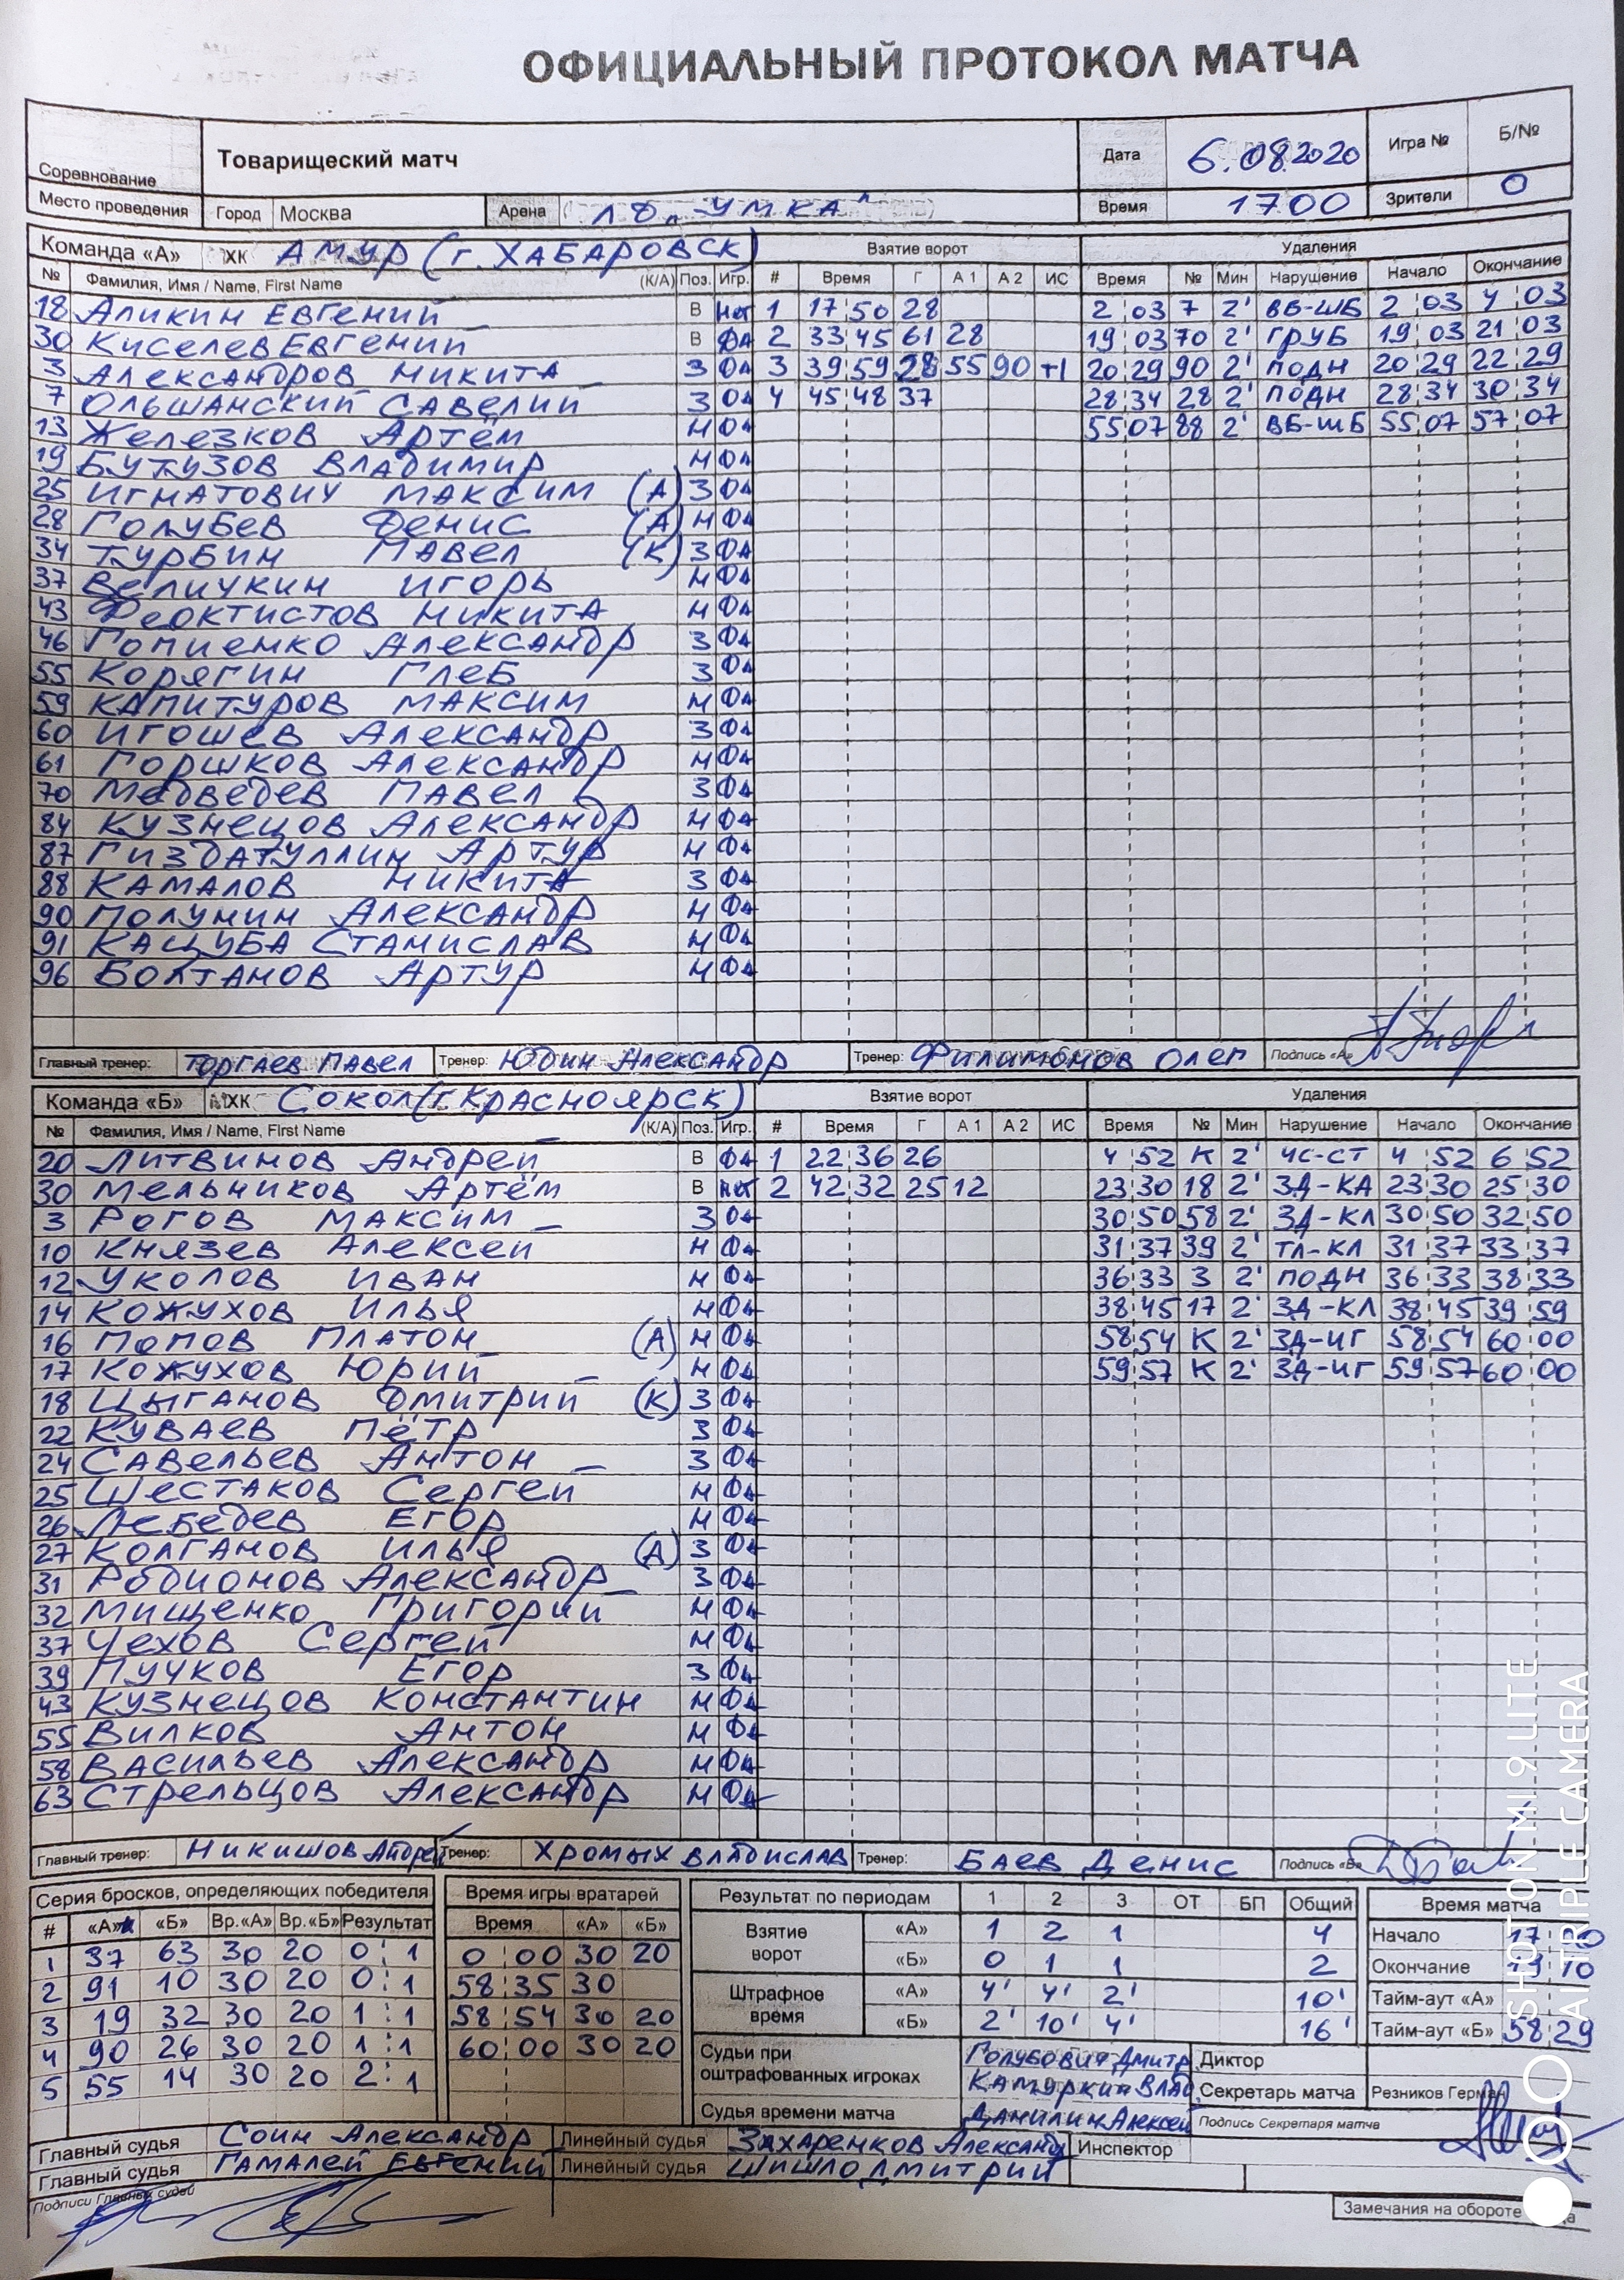 ОФИЦИАЛЬНЫЙ ПРОТОКОЛ МАТЧА
Соревнование Товарищеский матч Дата 6.08.2020 Игра № Б/№
Место проведения Город Москва Арена ЛД „УМКА" Время 17 00 Зрители 0
Команда «А» ХК АМУР (г. ХАБАРОВСК) Взятие ворот Удаления
№ Фамилия, Имя / Name, First Name (К/А) Поз. Игр. # Время Г А 1 А 2 ИС Время № Мин Нарушение Начало Окончание
18 Аликин Евгений В Нет 1 17 50 28 2 03 7 2' ВБ-ШБ 2 03 4 03
30 Киселев Евгений В Да 2 33 45 61 28 19 03 70 2' ГРУБ 19 03 21 03
3 Александров Никита З Да 3 39 59 28 55 90 +1 20 29 90 2' ПОДН 20 29 22 29
7 Ольшанский Савелий З Да 4 45 48 37 28 34 28 2' ПОДН 28 34 30 34
13 Железков Артём Н Да 55 07 88 2' ВБ-ШБ 55 07 57 07
19 Бутузов Владимир Н Да
25 Игнатович Максим (А) З Да
28 Голубев Денис (А) Н Да
34 Турбин Павел (К) З Да
37 Величкин Игорь Н Да
43 Феоктистов Никита Н Да
46 Гопиенко Александр З Да
55 Корягин Глеб З Да
59 Капитуров Максим Н Да
60 Игошев Александр З Да
61 Горшков Александр Н Да
70 Медведев Павел З Да
84 Кузнецов Александр Н Да
87 Гиздатуллин Артур Н Да
88 Камалов Никита З Да
90 Полунин Александр Н Да
91 Кацуба Станислав Н Да
96 Болтанов Артур Н Да
Главный тренер: Торгаев Павел Тренер: Юдин Александр Тренер: Филимонов Олег Подпись «А»
Команда «Б» ХК Сокол (г. Красноярск) Взятие ворот Удаления
№ Фамилия, Имя / Name, First Name (К/А) Поз. Игр. # Время Г А 1 А 2 ИС Время № Мин Нарушение Начало Окончание
20 Литвинов Андрей В Да 1 22 36 26 4 52 К 2' ЧС-СТ 4 52 6 52
30 Мельников Артём В Нет 2 42 32 25 12 23 30 18 2' ЗД-КЛ 23 30 25 30
3 Рогов Максим З Да 30 50 58 2' ЗД-КЛ 30 50 32 50
10 Князев Алексей Н Да 31 37 39 2' ТЛ-КЛ 31 37 33 37
12 Уколов Иван Н Да 36 33 3 2' ПОДН 36 33 38 33
14 Кожухов Илья Н Да 38 45 17 2' ЗД-КЛ 38 45 39 59
16 Попов Платон (А) Н Да 58 54 К 2' ЗД-ИГ 58 54 60 00
17 Кожухов Юрий Н Да 59 57 К 2' ЗД-ИГ 59 57 60 00
18 Цыганов Дмитрий (К) З Да
22 Куваев Пётр З Да
24 Савельев Антон З Да
25 Шестаков Сергей Н Да
26 Лебедев Егор Н Да
27 Колганов Илья (А) З Да
31 Родионов Александр З Да
32 Мищенко Григорий Н Да
37 Чехов Сергей Н Да
39 Пучков Егор З Да
43 Кузнецов Константин Н Да
55 Вилков Антон Н Да
58 Васильев Александр Н Да
63 Стрельцов Александр Н Да
Главный тренер: Никишов Андрей Тренер: Хромых Владислав Тренер: Баев Денис Подпись «Б»
Серия бросков, определяющих победителя Время игры вратарей Результат по периодам 1 2 3 ОТ БП Общий Время матча
# «А» «Б» Вр.«А» Вр.«Б» Результат Время «А» «Б» Взятие ворот «А» 1 2 1 4 Начало 17
1 37 63 30 20 0 1 0 00 30 20 «Б» 0 1 1 2 Окончание 19 10
2 91 10 30 20 0 1 58 35 30 Штрафное время «А» 4' 4' 2' 10' Тайм-аут «А»
3 19 32 30 20 1 1 58 54 30 20 «Б» 2' 10' 4' 16' Тайм-аут «Б» 58 29
4 90 26 30 20 1 1 60 00 30 20 Судьи при оштрафованных игроках Голубович Дмитр Диктор
5 55 14 30 20 2 1 Камуркин Влад Секретарь матча Резников Герман
Судья времени матча Данилин Алексей Подпись Секретаря матча
Главный судья Соин Александр Линейный судья Захаренков Александр Инспектор
Главный судья Гамалей Евгений Линейный судья Шишло Дмитрий
Подписи Главных судей
Замечания на обороте
SHOT ON MI 9 LITE
AI TRIPLE CAMERA